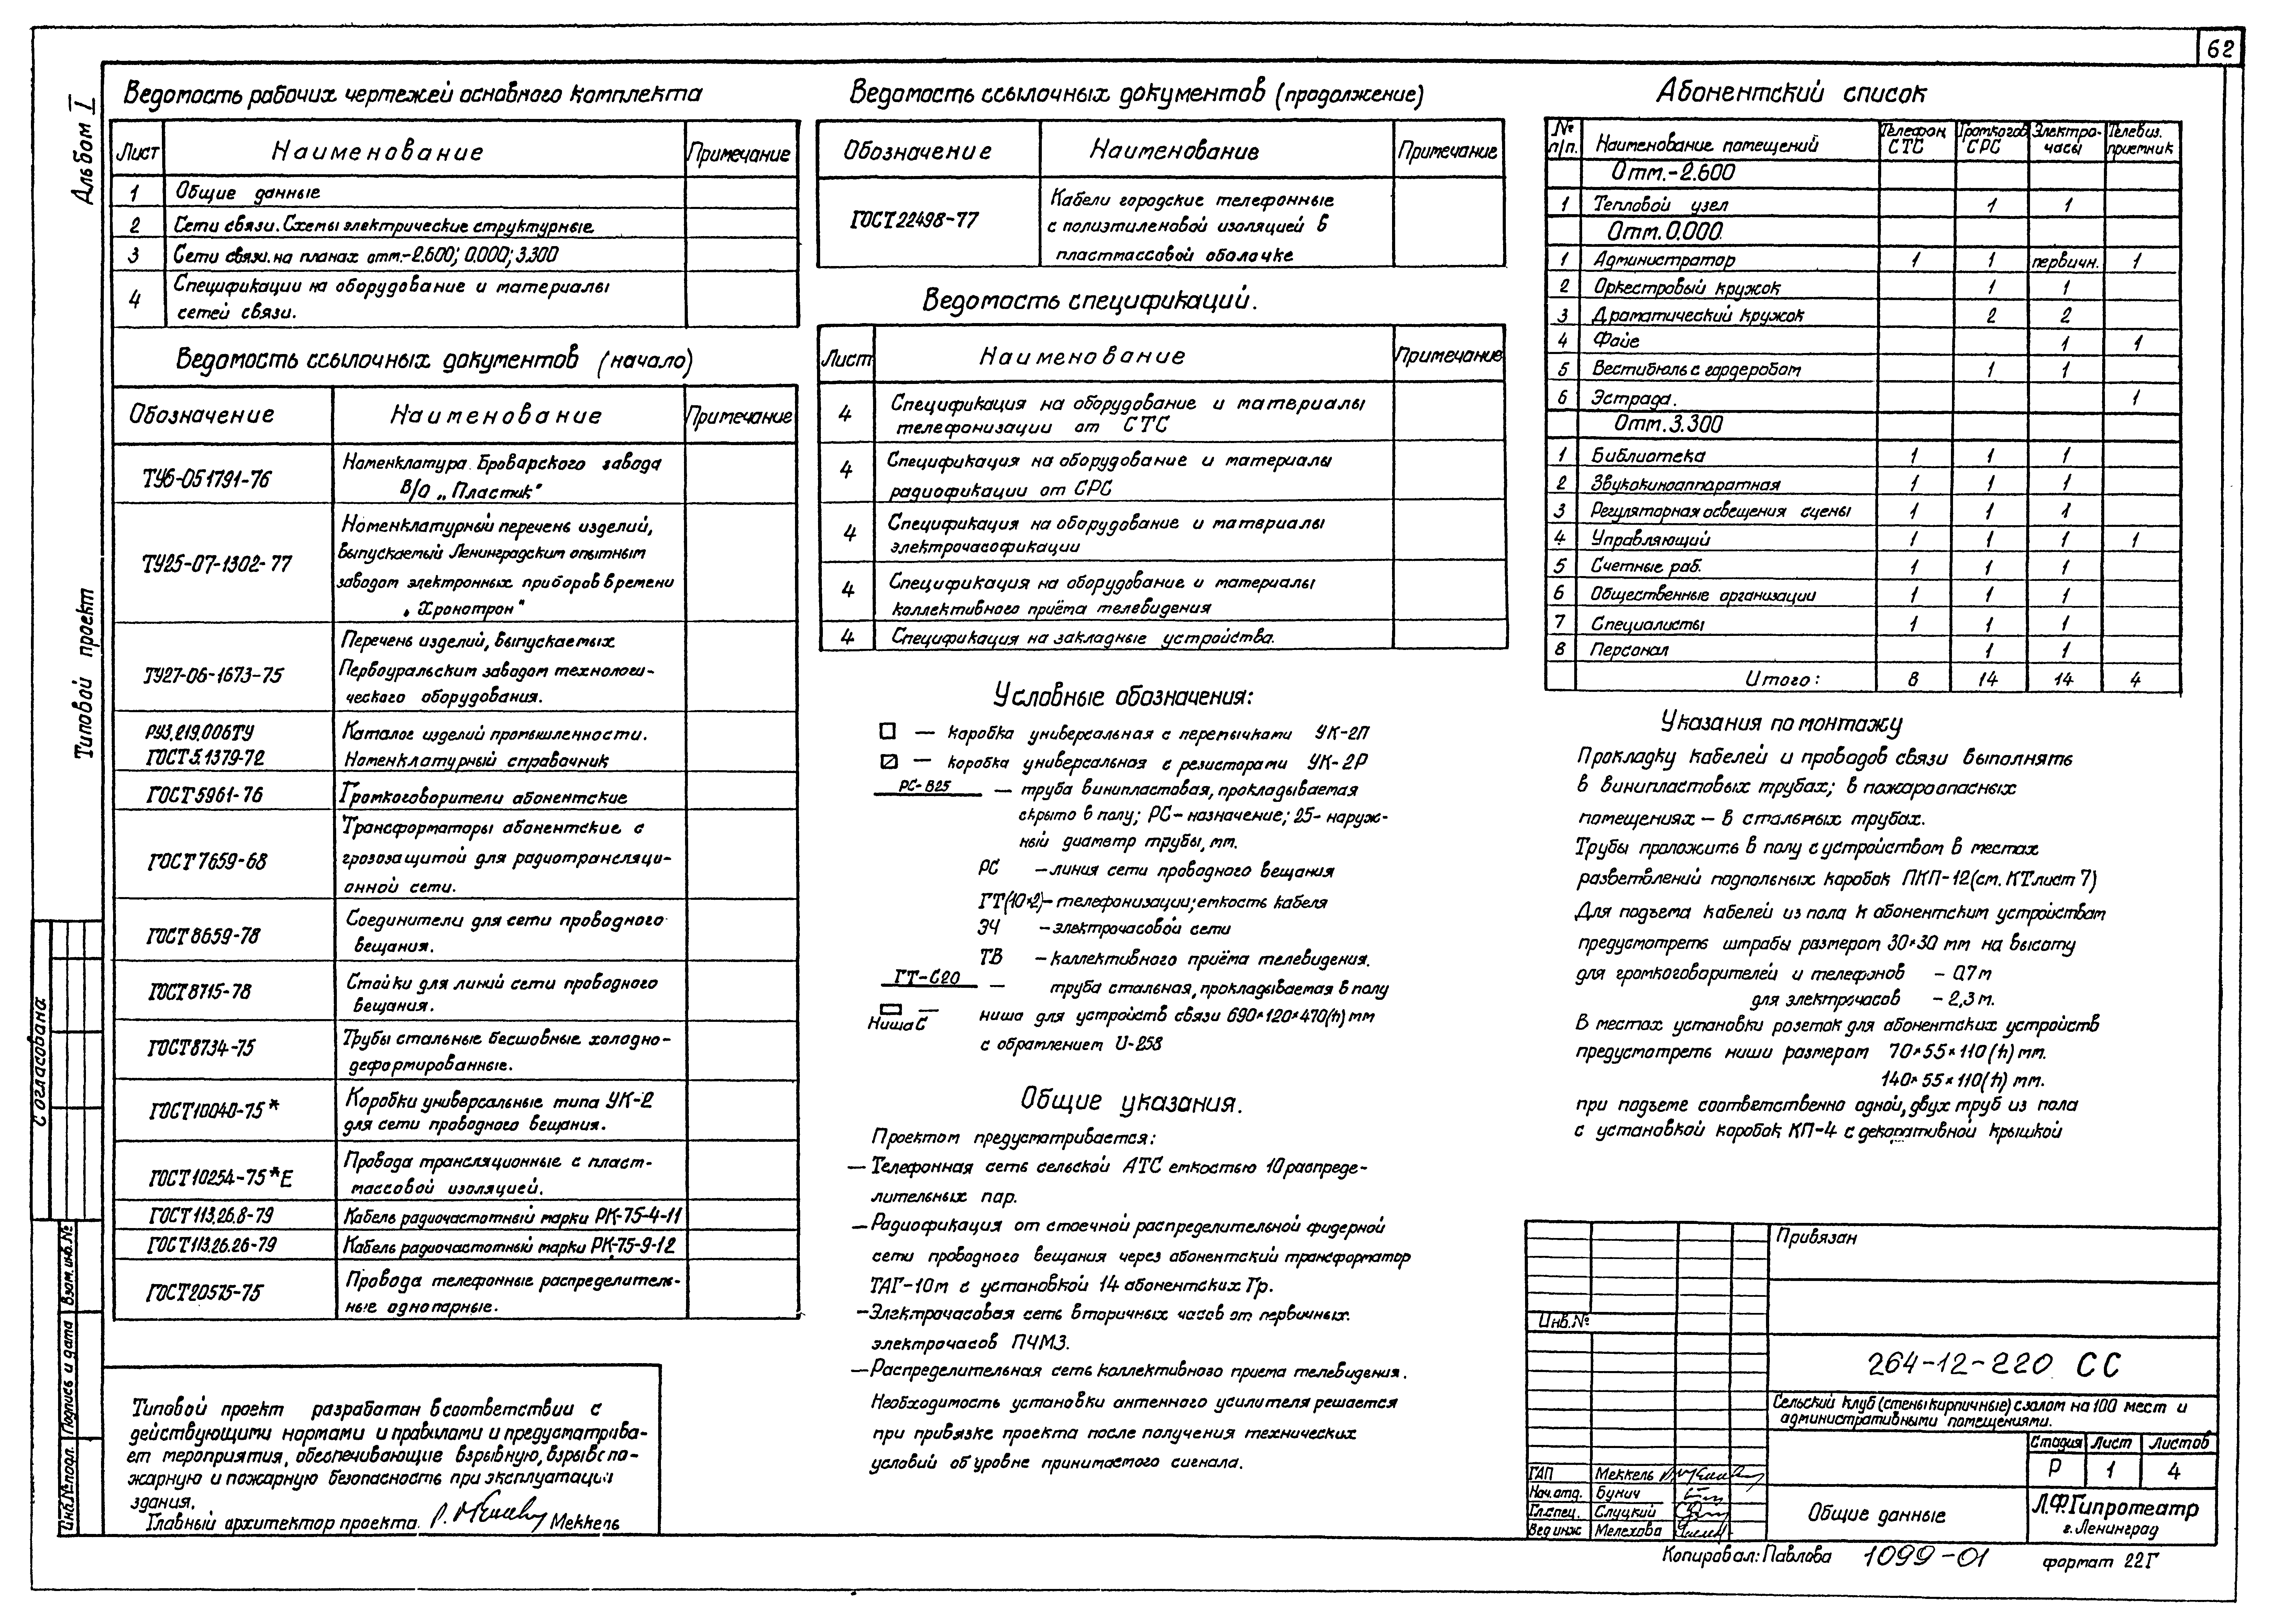 62
Альбом I
Типовой проект
Согласовано
Взам. инв.№
Подпись и дата
Инв.№подл.
Ведомость рабочих чертежей основного комплекта
Лист Наименование Примечание
1 Общие данные
2 Сети связи. Схемы электрические структурные
3 Сети связи. на планах отм.-2.600; 0.000; 3.300
4 Спецификации на оборудование и материалы
сетей связи.
Ведомость ссылочных документов (начало)
Обозначение Наименование Примечание
ТУ6-051791-76 Номенклатура Броварского завода
В/О „Пластик"
ТУ25-07-1302-77 Номенклатурный перечень изделий,
выпускаемый Ленинградским опытным
заводом электронных приборов времени
„Хронотрон"
ТУ27-06-1673-75 Перечень изделий, выпускаемых
Первоуральским заводом технологи-
ческого оборудования.
РУ3.219.006ТУ Каталог изделий промышленности.
ГОСТ5.1379-72 Номенклатурный справочник
ГОСТ5961-76 Громкоговорители абонентские
ГОСТ7659-68 Трансформаторы абонентские с
грозозащитой для радиотрансляци-
онной сети.
ГОСТ8659-78 Соединители для сети проводного
вещания.
ГОСТ8715-78 Стойки для линий сети проводного
вещания.
ГОСТ8734-75 Трубы стальные бесшовные холодно-
деформированные.
ГОСТ10040-75* Коробки универсальные типа УК-2
для сети проводного вещания.
ГОСТ10254-75*Е Провода трансляционные с пласт-
массовой изоляцией.
ГОСТ113.26.8-79 Кабель радиочастотный марки РК-75-4-11
ГОСТ113.26.26-79 Кабель радиочастотный марки РК-75-9-12
ГОСТ20575-75 Провода телефонные распределитель-
ные однопарные.
Типовой проект разработан в соответствии с
действующими нормами и правилами и предусматрива-
ет мероприятия, обеспечивающие взрывную, взрывспо-
жарную и пожарную безопасность при эксплуатации
здания.
Главный архитектор проекта. Меккель
Ведомость ссылочных документов (продолжение)
Обозначение Наименование Примечание
ГОСТ22498-77 Кабели городские телефонные
с полиэтиленовой изоляцией в
пластмассовой оболочке
Ведомость спецификаций.
Лист Наименование Примечание
4 Спецификация на оборудование и материалы
телефонизации от СТС
4 Спецификация на оборудование и материалы
радиофикации от СРС
4 Спецификация на оборудование и материалы
электрочасофикации
4 Спецификация на оборудование и материалы
коллективного приёма телевидения
4 Спецификация на закладные устройства.
Условные обозначения:
— коробка универсальная с перемычками УК-2П
— коробка универсальная с резисторами УК-2Р
РС-В25 — труба винипластовая, прокладываемая
скрыто в полу; РС- назначение; 25- наруж-
ный диаметр трубы, мм.
РС -линия сети проводного вещания
ГТ(10×2)-телефонизации; емкость кабеля
ЭЧ -электрочасовой сети
ТВ -коллективного приёма телевидения.
ГТ-С20 — труба стальная, прокладываемая в полу
Ниша С ниша для устройств связи 690×120×470(h) мм
с обрамлением U-258
Общие указания.
Проектом предусматривается:
— Телефонная сеть сельской АТС емкостью 10 распреде-
лительных пар.
— Радиофикация от стоечной распределительной фидерной
сети проводного вещания через абонентский трансформатор
ТАГ-10м с установкой 14 абонентских Гр.
—Электрочасовая сеть вторичных часов от первичных.
электрочасов ПЧМЗ.
—Распределительная сеть коллективного приема телевидения.
Необходимость установки антенного усилителя решается
при привязке проекта после получения технических
условий об уровне принимаемого сигнала.
Абонентский список
№ п/п. Наименование помещений Телефон СТС Громкогов СРС Электро-часы Телевиз. приемник
Отм.-2.600
1 Тепловой узел 1 1
Отм.0.000
1 Администратор 1 1 первичн. 1
2 Оркестровый кружок 1 1
3 Драматический кружок 2 2
4 Фойе 1 1
5 Вестибюль с гардеробом 1 1
6 Эстрада. 1
Отм.3.300
1 Библиотека 1 1 1
2 Звукокиноаппаратная 1 1 1
3 Регуляторная освещения сцены 1 1 1
4 Управляющий 1 1 1 1
5 Счетные раб. 1 1 1
6 Общественные организации 1 1 1
7 Специалисты 1 1 1
8 Персонал 1 1
Итого: 8 14 14 4
Указания по монтажу
Прокладку кабелей и проводов связи выполнять
в винипластовых трубах; в пожароопасных
помещениях — в стальных трубах.
Трубы проложить в полу с устройством в местах
разветвлений подпольных коробок ПКП-12(см. КТлист 7)
Для подъема кабелей из пола к абонентским устройствам
предусмотреть штрабы размером 30×30 мм на высоту
для громкоговорителей и телефонов - 0,7м
для электрочасов - 2,3м.
В местах установки розеток для абонентских устройств
предусмотреть ниши размером 70×55×110(h) мм.
140×55×110(h) мм.
при подъеме соответственно одной, двух труб из пола
с установкой коробок КП-4 с декоративной крышкой
Привязан
Инв.№
264-12-220 СС
Сельский клуб (стены кирпичные) с залом на 100 мест и
административными помещениями.
Стадия Лист Листов
Р 1 4
ГАП Меккель
Нач.отд. Бунич
Гл.спец. Слуцкий
Вед инж Мелехова
Общие данные
Л.Ф.Гипротеатр
г. Ленинград
Копировал: Павлова 1099-01 формат 22Г